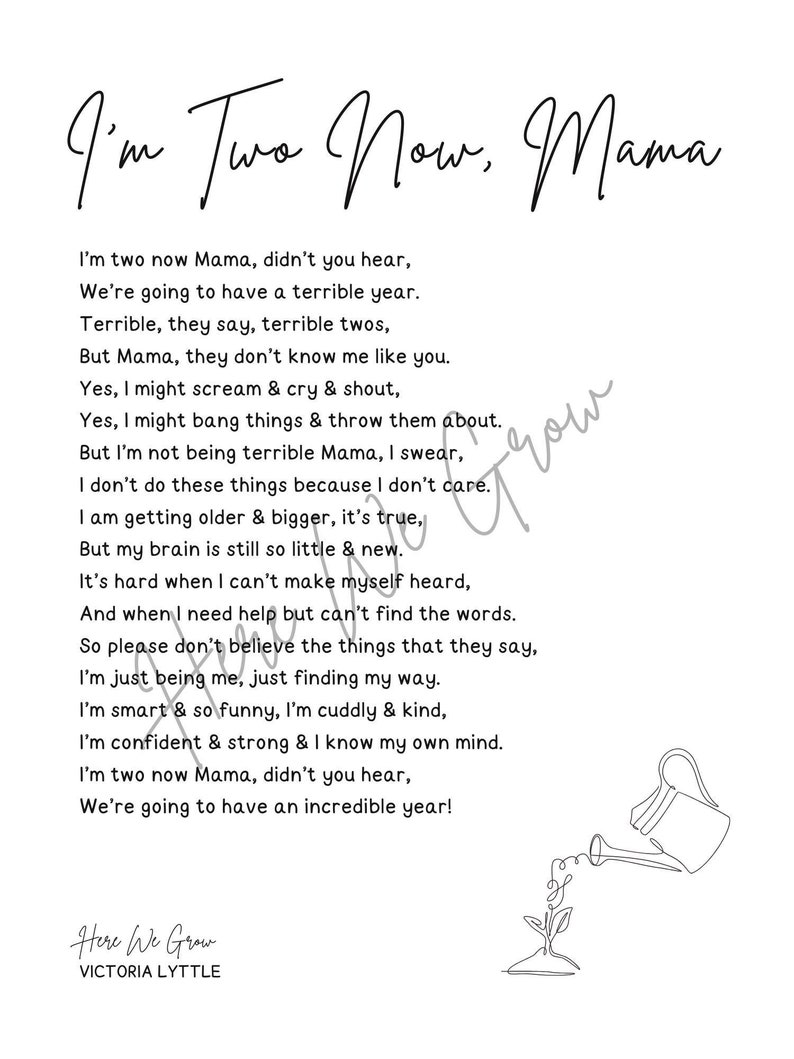 I'm Two Now, Mama
I'm two now Mama, didn't you hear,
We're going to have a terrible year.
Terrible, they say, terrible twos,
But Mama, they don't know me like you.
Yes, I might scream & cry & shout,
Yes, I might bang things & throw them about.
But I'm not being terrible Mama, I swear,
I don't do these things because I don't care.
I am getting older & bigger, it's true,
But my brain is still so little & new.
It's hard when I can't make myself heard,
And when I need help but can't find the words.
So please don't believe the things that they say,
I'm just being me, just finding my way.
I'm smart & so funny, I'm cuddly & kind,
I'm confident & strong & I know my own mind.
I'm two now Mama, didn't you hear,
We're going to have an incredible year!
Here We Grow
Here We Grow
VICTORIA LYTTLE